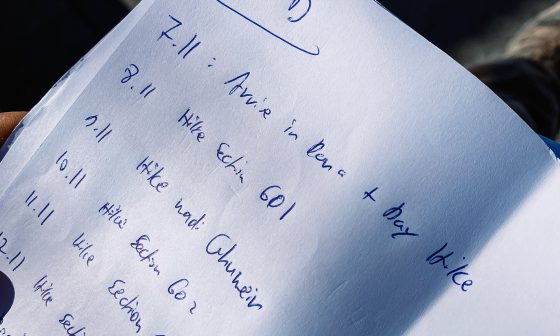 D
7.11: Arrive in Dana + Day Hike
8.11 Hike Section 601
9.11 Hike wadi Ghuweir
10.11 Hike Section 602
11.11 Hike Section
12.11 Hike